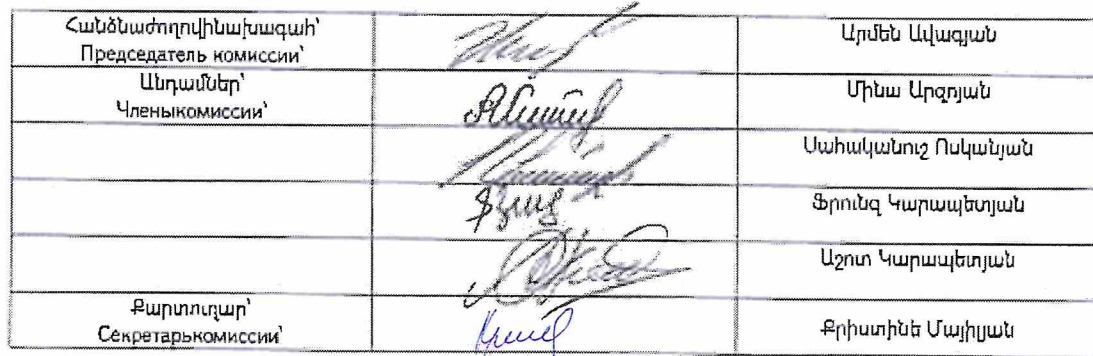 Հանձնաժողովինախագահ՝
Председатель комиссии՝
Արմեն Ավագյան
Անդամներ՝
Членыкомиссии՝
Մինա Արզոյան
Սահականուշ Ոսկանյան
Ֆրունզ Կարապետյան
Աշոտ Կարապետյան
Քարտուղար՝
Секретарькомиссии՝
Քրիստինե Մայիլյան